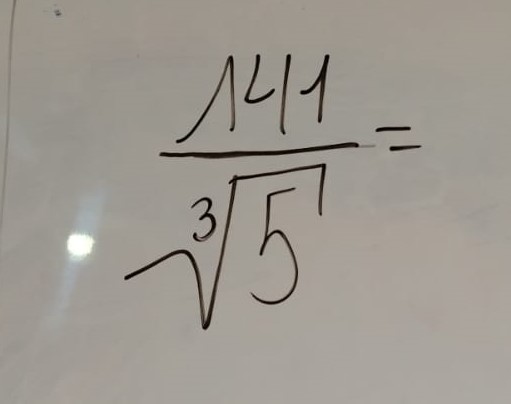 141
³√5 =